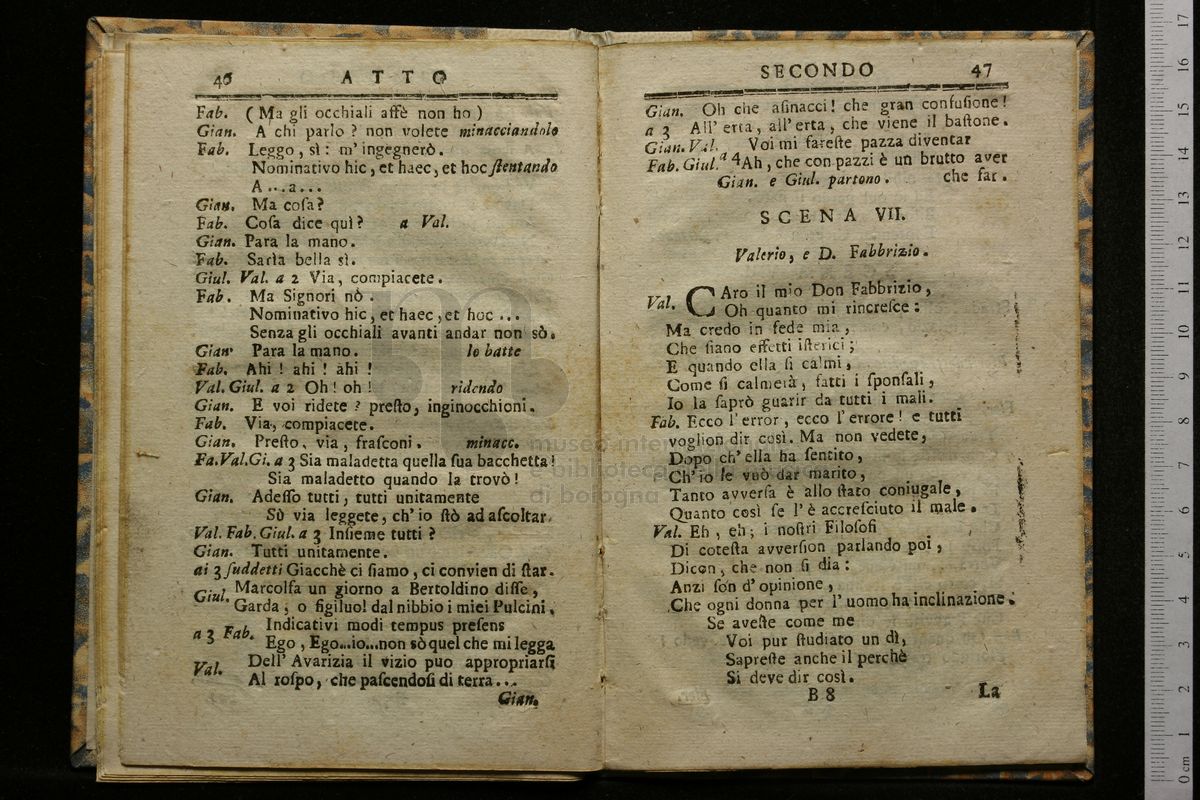 46 ATTO
Fab. ( Ma gli occhiali affè non ho )
Gian. A chi parlo ? non volete minacciandolo
Fab. Leggo, sì : m' ingegnerò.
Nominativo hic, et haec, et hoc ſtentando
A...a...
Gian. Ma coſa?
Fab. Coſa dice quì? a Val.
Gian. Para la mano.
Fab. Sarìa bella sì.
Giul. Val. a 2 Via, compiacete.
Fab. Ma Signori nò.
Nominativo hic, et haec, et hoc ...
Senza gli occhiali avanti andar non sò.
Gian. Para la mano. lo batte
Fab. Ahi ! ahi ! ahi !
Val. Giul. a 2 Oh ! oh ! ridendo
Gian. E voi ridete ? preſto, inginocchioni.
Fab. Via, compiacete.
Gian. Preſto, via, fraſconi. minacc.
Fa.Val.Gi. a 3 Sia maladetta quella ſua bacchetta!
Sia maladetto quando la trovò!
Gian. Adeſſo tutti, tutti unitamente
Sù via leggete, ch' io ſtò ad aſcoltar.
Val. Fab. Giul. a 3 Inſieme tutti ?
Gian. Tutti unitamente.
ai 3 ſuddetti Giacchè ci ſiamo, ci convien di ſtar.
Giul. Marcolfa un giorno a Bertoldino diſſe,
Garda, o figiluol dal nibbio i miei Pulcini.
a 3 Fab. Indicativi modi tempus preſens
Ego, Ego...io...non sò quel che mi legga
Val. Dell' Avarizia il vizio puo appropriarſi
Al roſpo, che paſcendoſi di terra...
Gian.
SECONDO 47
Gian. Oh che aſinacci! che gran confuſione!
a 3 All' erta, all' erta, che viene il baſtone.
Gian. Val. Voi mi fareſte pazza diventar
Fab. Giul. a 4 Ah, che con pazzi è un brutto aver
Gian. e Giul. partono. che far.
SCENA VII.
Valerio, e D. Fabbrizio.
Val. CAro il mio Don Fabbrizio,
Oh quanto mi rincreſce:
Ma credo in fede mia,
Che ſiano effetti iſterici;
E quando ella ſi calmi,
Come ſi calmerà, fatti i ſponſali,
Io la ſaprò guarir da tutti i mali.
Fab. Ecco l' error, ecco l' errore! e tutti
voglion dir così. Ma non vedete,
Dopo ch' ella ha ſentito,
Ch' io le vuò dar marito,
Tanto avverſa è allo ſtato coniugale,
Quanto così ſe l' è accreſciuto il male.
Val. Eh, eh; i noſtri Filoſofi
Di coteſta avverſion parlando poi,
Dicon, che non ſi dia:
Anzi ſon d' opinione,
Che ogni donna per l' uomo ha inclinazione.
Se aveſte come me
Voi pur ſtudiato un dì,
Sapreſte anche il perchè
Si deve dir così.
B 8 La